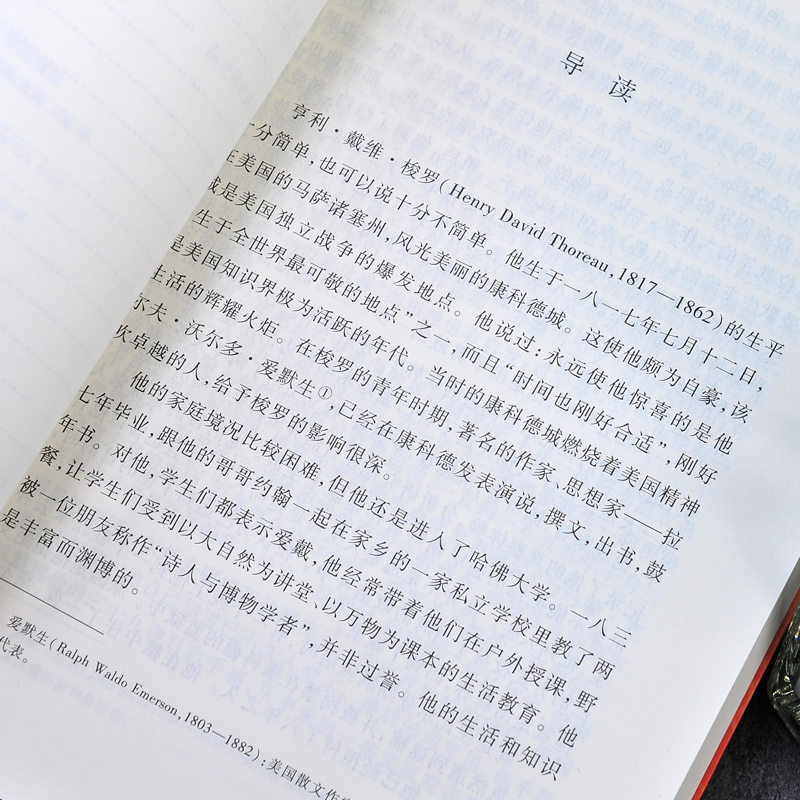 导读
亨利·戴维·梭罗（Henry David Thoreau, 1817—1862）的生平
十分简单，也可以说十分不简单。他生于一八一七年七月十二日，
在美国的马萨诸塞州，风光美丽的康科德城。这使他颇为自豪，该
城是美国独立战争的爆发地点。他说过：永远使他惊喜的是他
生于全世界最可敬的地点”之一，而且“时间也刚好合适”，刚好
是美国知识界极为活跃的年代。当时的康科德城燃烧着美国精神
生活的辉耀火炬。在梭罗的青年时期，著名的作家、思想家——拉
尔夫·沃尔多·爱默生①，已经在康科德发表演说，撰文，出书，鼓
吹卓越的人，给予梭罗的影响很深。
他的家庭境况比较困难，但他还是进入了哈佛大学。一八三
七年毕业，跟他的哥哥约翰一起在家乡的一家私立学校里教了两
年书。对他，学生们都表示爱戴，他经常带着他们在户外授课，野
餐，让学生们受到以大自然为讲堂、以万物为课本的生活教育。他
被一位朋友称作“诗人与博物学者”，并非过誉。他的生活和知识
是丰富而渊博的。
爱默生（Ralph Waldo Emerson, 1803—1882）：美国散文作
代表。